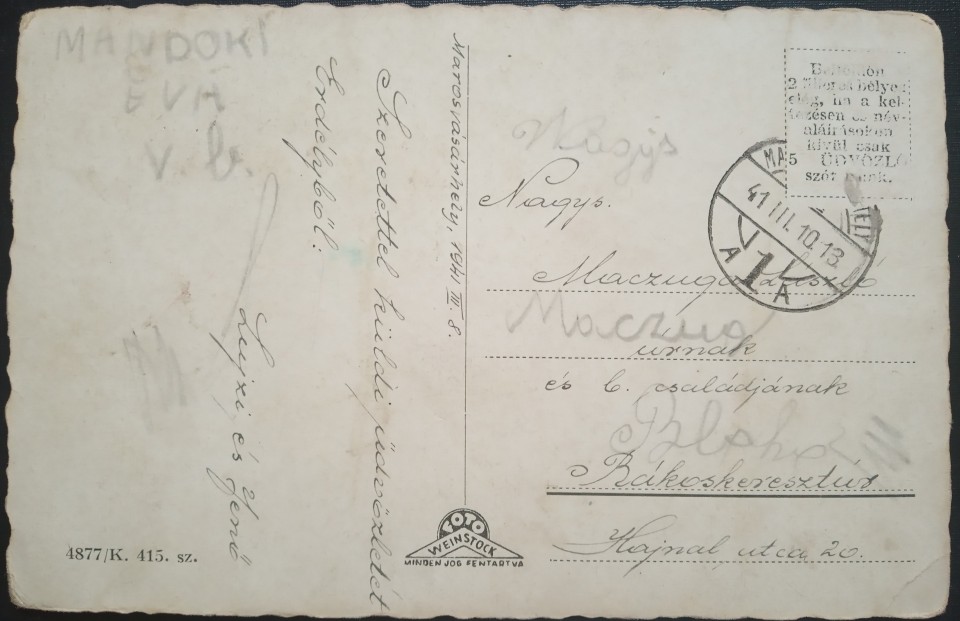 MANDOKI
ÉVA
V. b.
Marosvásárhely, 1941 III. 8.
Szeretettel küldi üdvözletét
Erdélyből:
Lujzi és Jenő
4877/K. 415. sz.
FOTO
WEINSTOCK
MINDEN JOG FENTARTVA
Belföldön
2 filléres bélyeg
elég, ha a kel-
tezésen és név-
aláírásokon
kívül csak
5 ÜDVÖZLŐ
szót írunk.
MA
HELY
41 III. 10. 13
A 1 A
Nagys
Nagys.
Maczuga László
Maczug
úrnak
és b. családjának
Rákoskeresztúr
Hajnal utca 20.